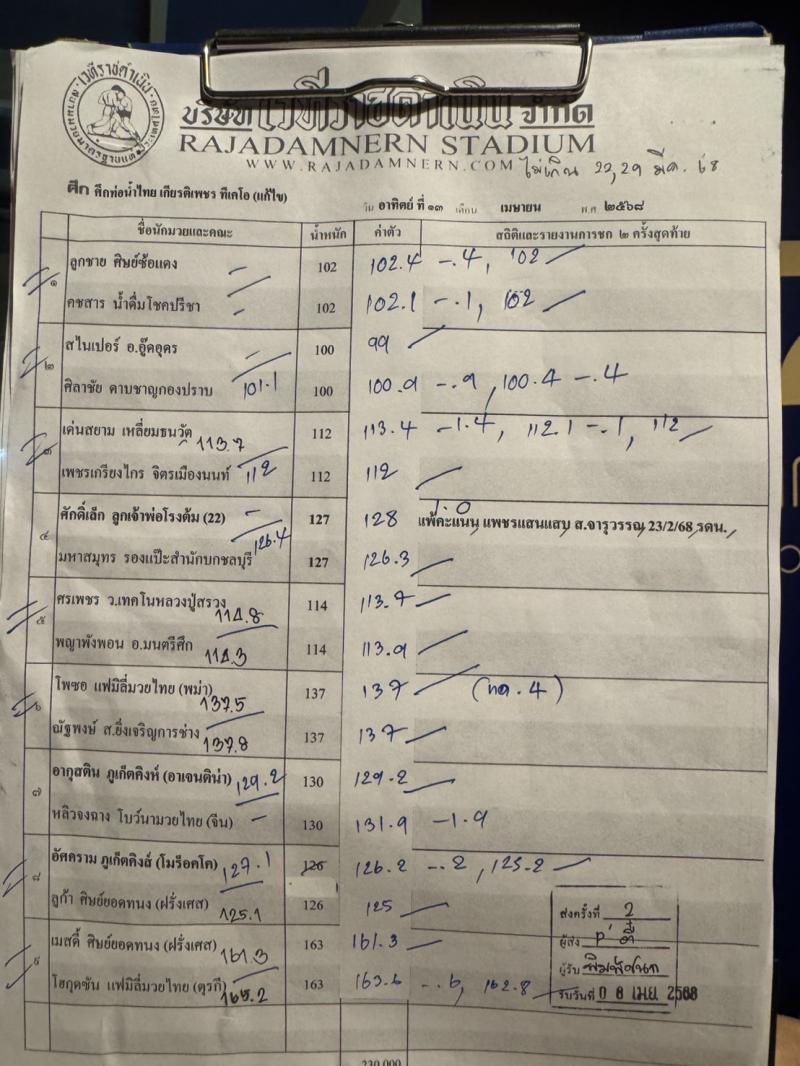 เวทีราชดำเนิน
บริษัท เวทีราชดำเนิน จำกัด
RAJADAMNERN STADIUM
WWW.RAJADAMNERN.COM ไม่เกิน 22,29 มีค. 68
ศึก ศึกท่อน้ำไทย เกียรติเพชร ทีเคโอ (แก้ไข) วัน อาทิตย์ ที่ ๑๓ เดือน เมษายน พ.ศ ๒๕๖๘
ชื่อนักมวยและคณะ น้ำหนัก ค่าตัว สถิติและรายงานการชก ๒ ครั้งสุดท้าย
๑ ลูกชาย ศิษย์ซ้อแดง - 102 102.4 -.4, 102
คชสาร น้ำดื่มโชคปรีชา - 102 102.1 -.1, 102
๒ สไนเปอร์ อ.อู๊ดอุดร - 100 99
ศิลาชัย ดาบชาญกองปราบ 101.1 100 100.9 -.9, 100.4 -.4
๓ เด่นสยาม เหลี่ยมธนวัต 113.7 112 113.4 -1.4, 112.1 -.1, 112
เพชรเกรียงไกร จิตรเมืองนนท์ 112 112 112
๔ ศักดิ์เล็ก ลูกเจ้าพ่อโรงต้ม (22) - 127 128 1.0 แพ้คะแนน แพชรแสนแสบ ส.จารุวรรณ 23/2/68 รดน.
มหาสมุทร รองแป๊ะสำนักบกชลบุรี 126.4 127 126.3
๕ ศรเพชร ว.เทคโนหลวงปู่สรวง 114.8 114 113.7
พญาพังพอน อ.มนตรีศึก 114.3 114 113.9
๖ โพซอ แฟมิลี่มวยไทย (พม่า) 137.5 137 137 (ทด. 4)
ณัฐพงษ์ ส.ยิ่งเจริญการช่าง 137.8 137 137
๗ อากุสติน ภูเก็ตคิงห์ (อาเจนติน่า) 129.2 130 129.2
หลิวจงฉาง โบว์นามวยไทย (จีน) - 130 131.9 -1.9
๘ อัศคราม ภูเก็ตคิงส์ (โมร็อคโค) 127.1 126 126.2 -.2, 125.2
ลูก้า ศิษย์ยอดทนง (ฝรั่งเศส) 125.1 126 125
๙ เมสดี้ ศิษย์ยอดทนง (ฝรั่งเศส) 161.3 163 161.3
โฮกุดซัน แฟมิลี่มวยไทย (ตุรกี) 163 163.6 -.6, 162.8
ส่งครั้งที่ 2
ผู้ส่ง
ผู้รับ
รับวันที่ 0 8 เม.ย. 2568
230,000